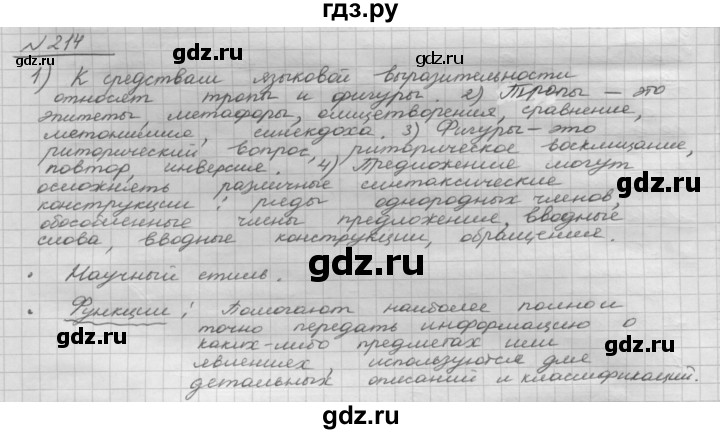 гдз.ру
№ 214
1) К средствам языковой выразительности
относят тропы и фигуры. 2) Тропы – это
эпитеты, метафоры, олицетворения, сравнение,
метонимия, синекдоха. 3) Фигуры – это
риторический вопрос, риторическое восклицание,
повтор, инверсия. 4) Предложение могут
осложнять различные синтаксические
конструкции: ряды однородных членов,
обособленные члены предложения, вводные
слова, вводные конструкции, обращения.
• Научный стиль.
• Функции: Помогают наиболее полно и
точно передать информацию о
каких-либо предметах или
явлениях, используются для
детальных описаний и классификаций.
gdz.ru
gdz.ru
gdz.ru
gdz.ru
gdz.ru
gdz.ru
gdz.ru
gdz.ru
gdz.ru
gdz.ru
gdz.ru
gdz.ru
gdz.ru
gdz.ru
гдз.ру